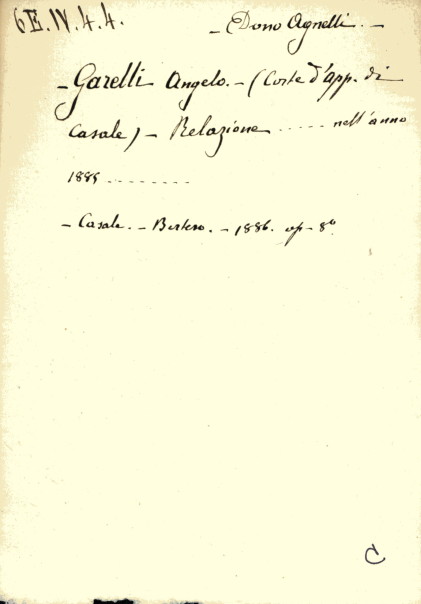 6E.IV.4.4.
- Dono Agnelli. -
- Garelli Angelo. - (Corte d'App. di
Casale) - Relazione ..... nell'anno
1885 ........
- Casale. - Bertero. - 1886. op - 8°
C